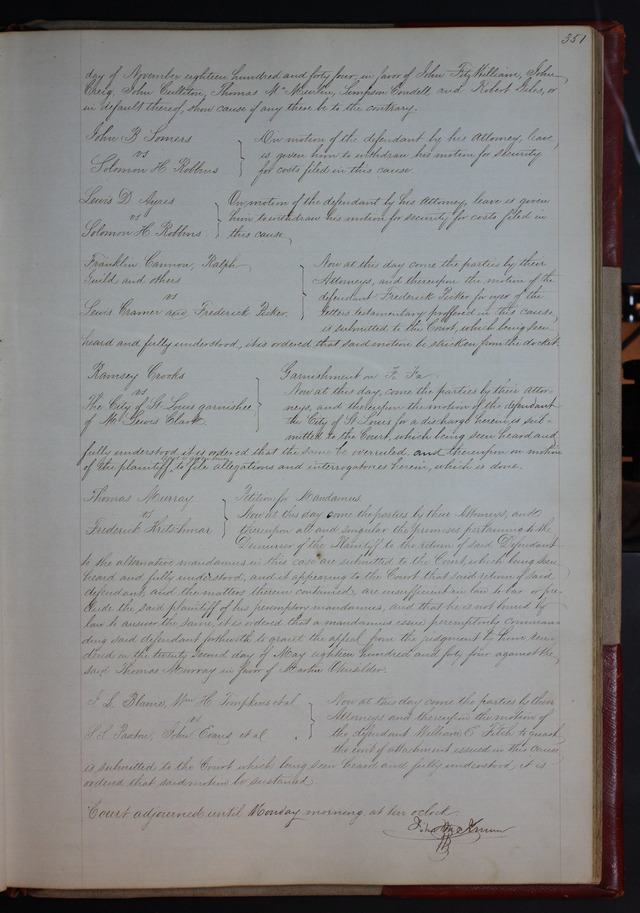 351
day of November eighteen hundred and forty four, in favor of John Fitz William, John
Creig, John Cultiton, Thomas Mc Newlin, Simpson Condell and Robert Giles, or
in default thereof, show cause if any there be to the contrary.
John B Somers } On motion of the defendant by his Attorney, leave
vs is given him to withdraw his motion for security
Solomon H. Robbins for costs filed in this cause
Lewis D. Ayres } On motion of the defendant by his Attorney, leave is given
vs him to withdraw his motion for security for costs filed in
Solomon H. Robbins this cause,
Franklin Cannon, Ralph } Now at this day come the parties by their
Guild and others Attorneys, and thereupon the motion of the
vs defendant Frederick Picker for oyer of the
Lewis Cramer and Frederick Picker letters testamentary proffered in this cause
is submitted to the Court, which being seen
heard and fully understood, it is ordered that said motion be stricken from the docket.
Ramsey Crooks } Garnishment on Fi Fa
vs Now at this day, come the parties by their attor-
The City of St Louis garnishee neys, and thereupon the motion of the defendant
of Lewis Clark the City of St Louis for a discharge herein is sub-
mitted to the Court, which being seen heard and
fully understood it is ordered that the same be overruled, and thereupon on motion
of the plaintiff, to file allegations and interrogatories herein, which is done.
Thomas Murray } Petition for Mandamus
vs Now at this day come the parties by their Attorneys, and
Frederick Kretschmar thereupon all and singular the premises pertaining to the
Demurrer of the Plaintiff to the return of said Defendant
to the alternative mandamus in this case are submitted to the Court, which being seen
heard and fully understood, and it appearing to the Court that said return of said
defendant, and the matters therein contained, are insufficient in law to bar or pre-
clude the said plaintiff of his peremptory mandamus, and that he is not bound by
law to answer the same, it is ordered that a mandamus issue peremptorily comman-
ding said defendant forthwith to grant the appeal from the judgment by him ren-
dered on the twenty second day of May eighteen hundred and forty four against the
said Thomas Murray in favor of Martin
J. L. Blaine, Wm H. Tompkins et al } Now at this day come the parties by their
vs Attorneys and thereupon the motion of
S. L. Paxton, John Evans et al the defendant William E Fitch to quash
the writ of attachment issued in this cause
is submitted to the Court which being seen heard and fully understood, it is
ordered that said motion be sustained.
Court adjourned until Monday morning at ten oclock